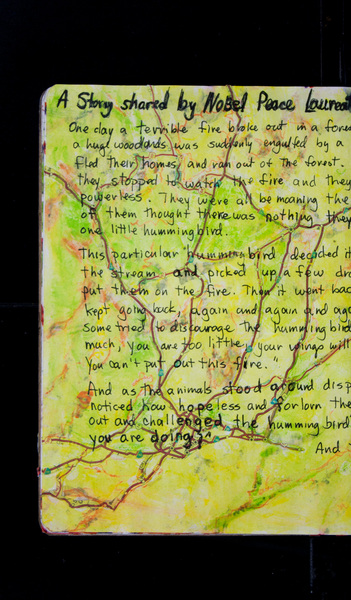 A Story shared by Nobel Peace Laureat
One day a terrible fire broke out in a fore
a huge woodlands was suddenly engulfed by a
fled their homes and ran out of the forest.
they stopped to watch the fire and they
powerless. They were all bemoaning the
of them thought there was nothing they
one little hummingbird.
This particular hummingbird decided it
the stream and picked up a few dro
put them on the fire. Then it went back
kept going back, again and again and aga
some tried to discourage the hummingbird
much, you are too little, your wings will
You can't put out this fire."
And as the animals stood around disp
noticed how hopeless and forlorn the
out and challenged the hummingbird
you are doing?"
And